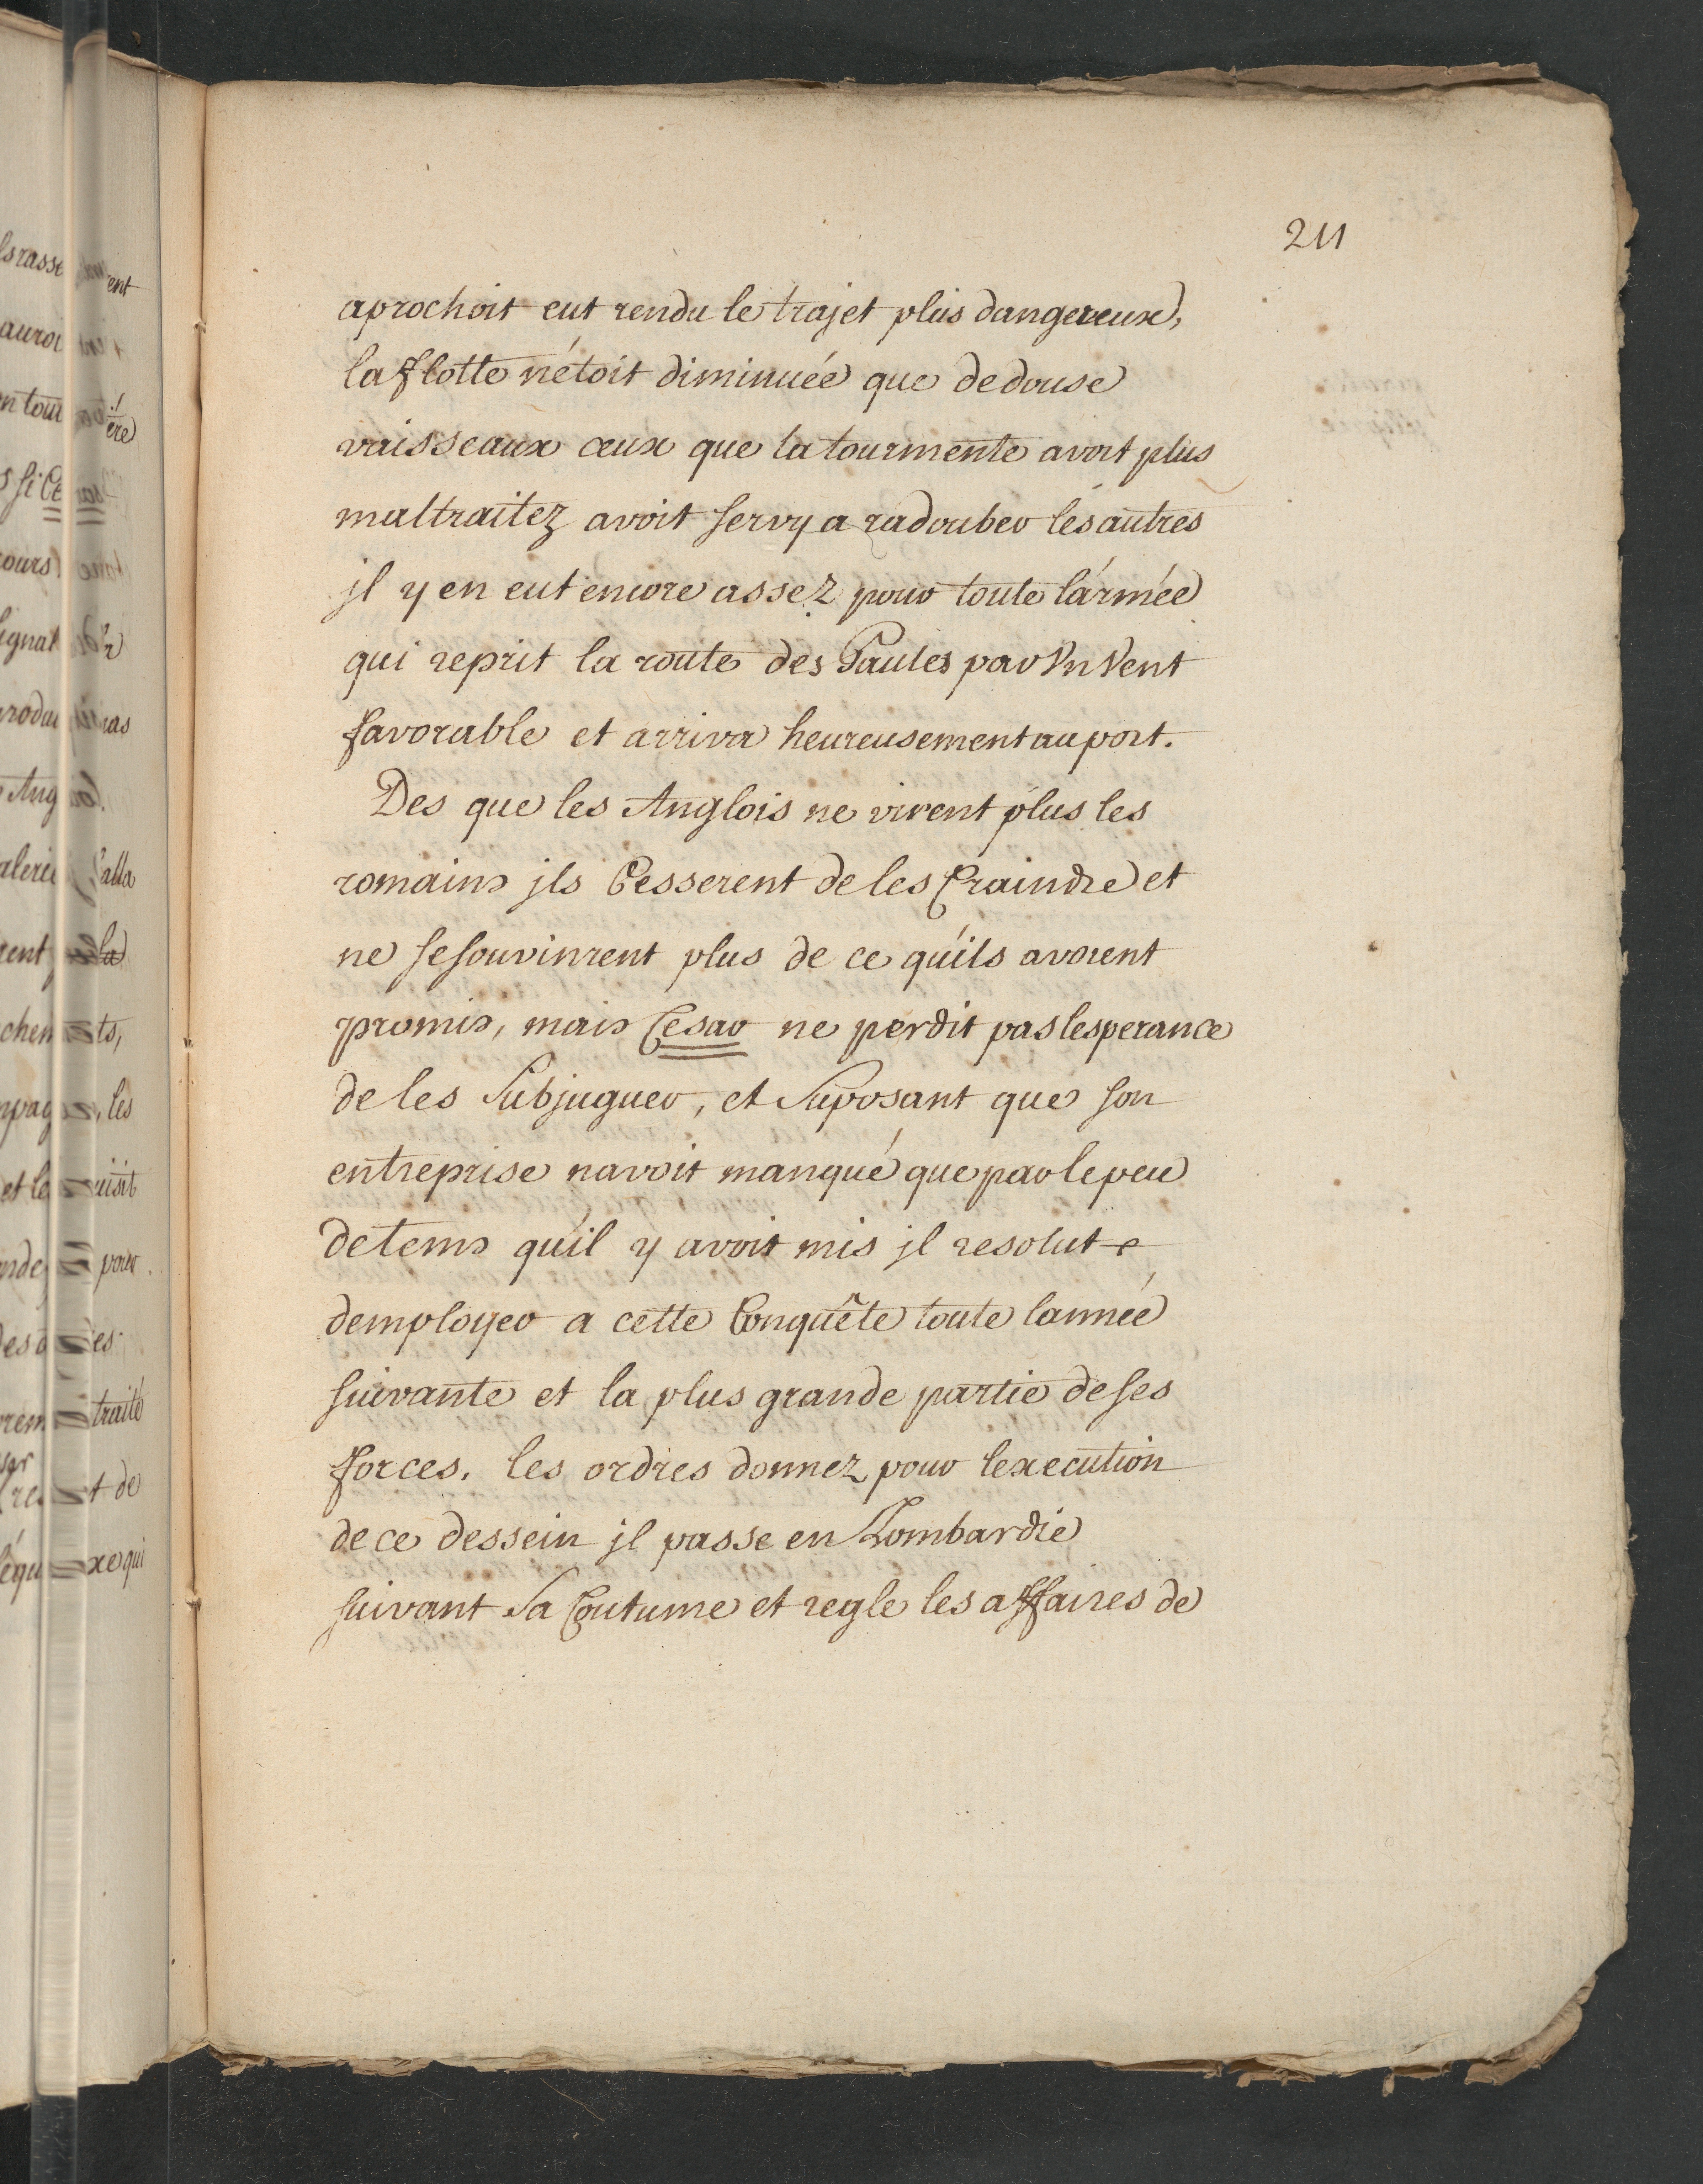 211
aprochoit eut rendu le trajet plus dangereux,
la flotte n'étoit diminuée que de douse
vaisseaux ceux que la tourmente avoit plus
maltraitez avoit servy a radouber les autres
jl y en eut encore assez pour toute l'armée
qui reprit la route des Gaules par Vn Vent
favorable et arriva heureusement au port.
Des que les Anglois ne virent plus les
romains jls Cesserent de les Craindre et
ne se souvinrent plus de ce qu'ils avoient
promis, mais Cesar ne perdit pas lesperance
de les Subjuguer, et Suposant que son
entreprise navoit manqué que par le peu
de tems qu'il y avoit mis jl resolut
demployer a cette Conquête toute lannée
suivante et la plus grande partie de ses
forces. les ordres donnez pour lexecution
de ce dessein jl passe en Lombardie
suivant Sa Coutume et regle les affaires de